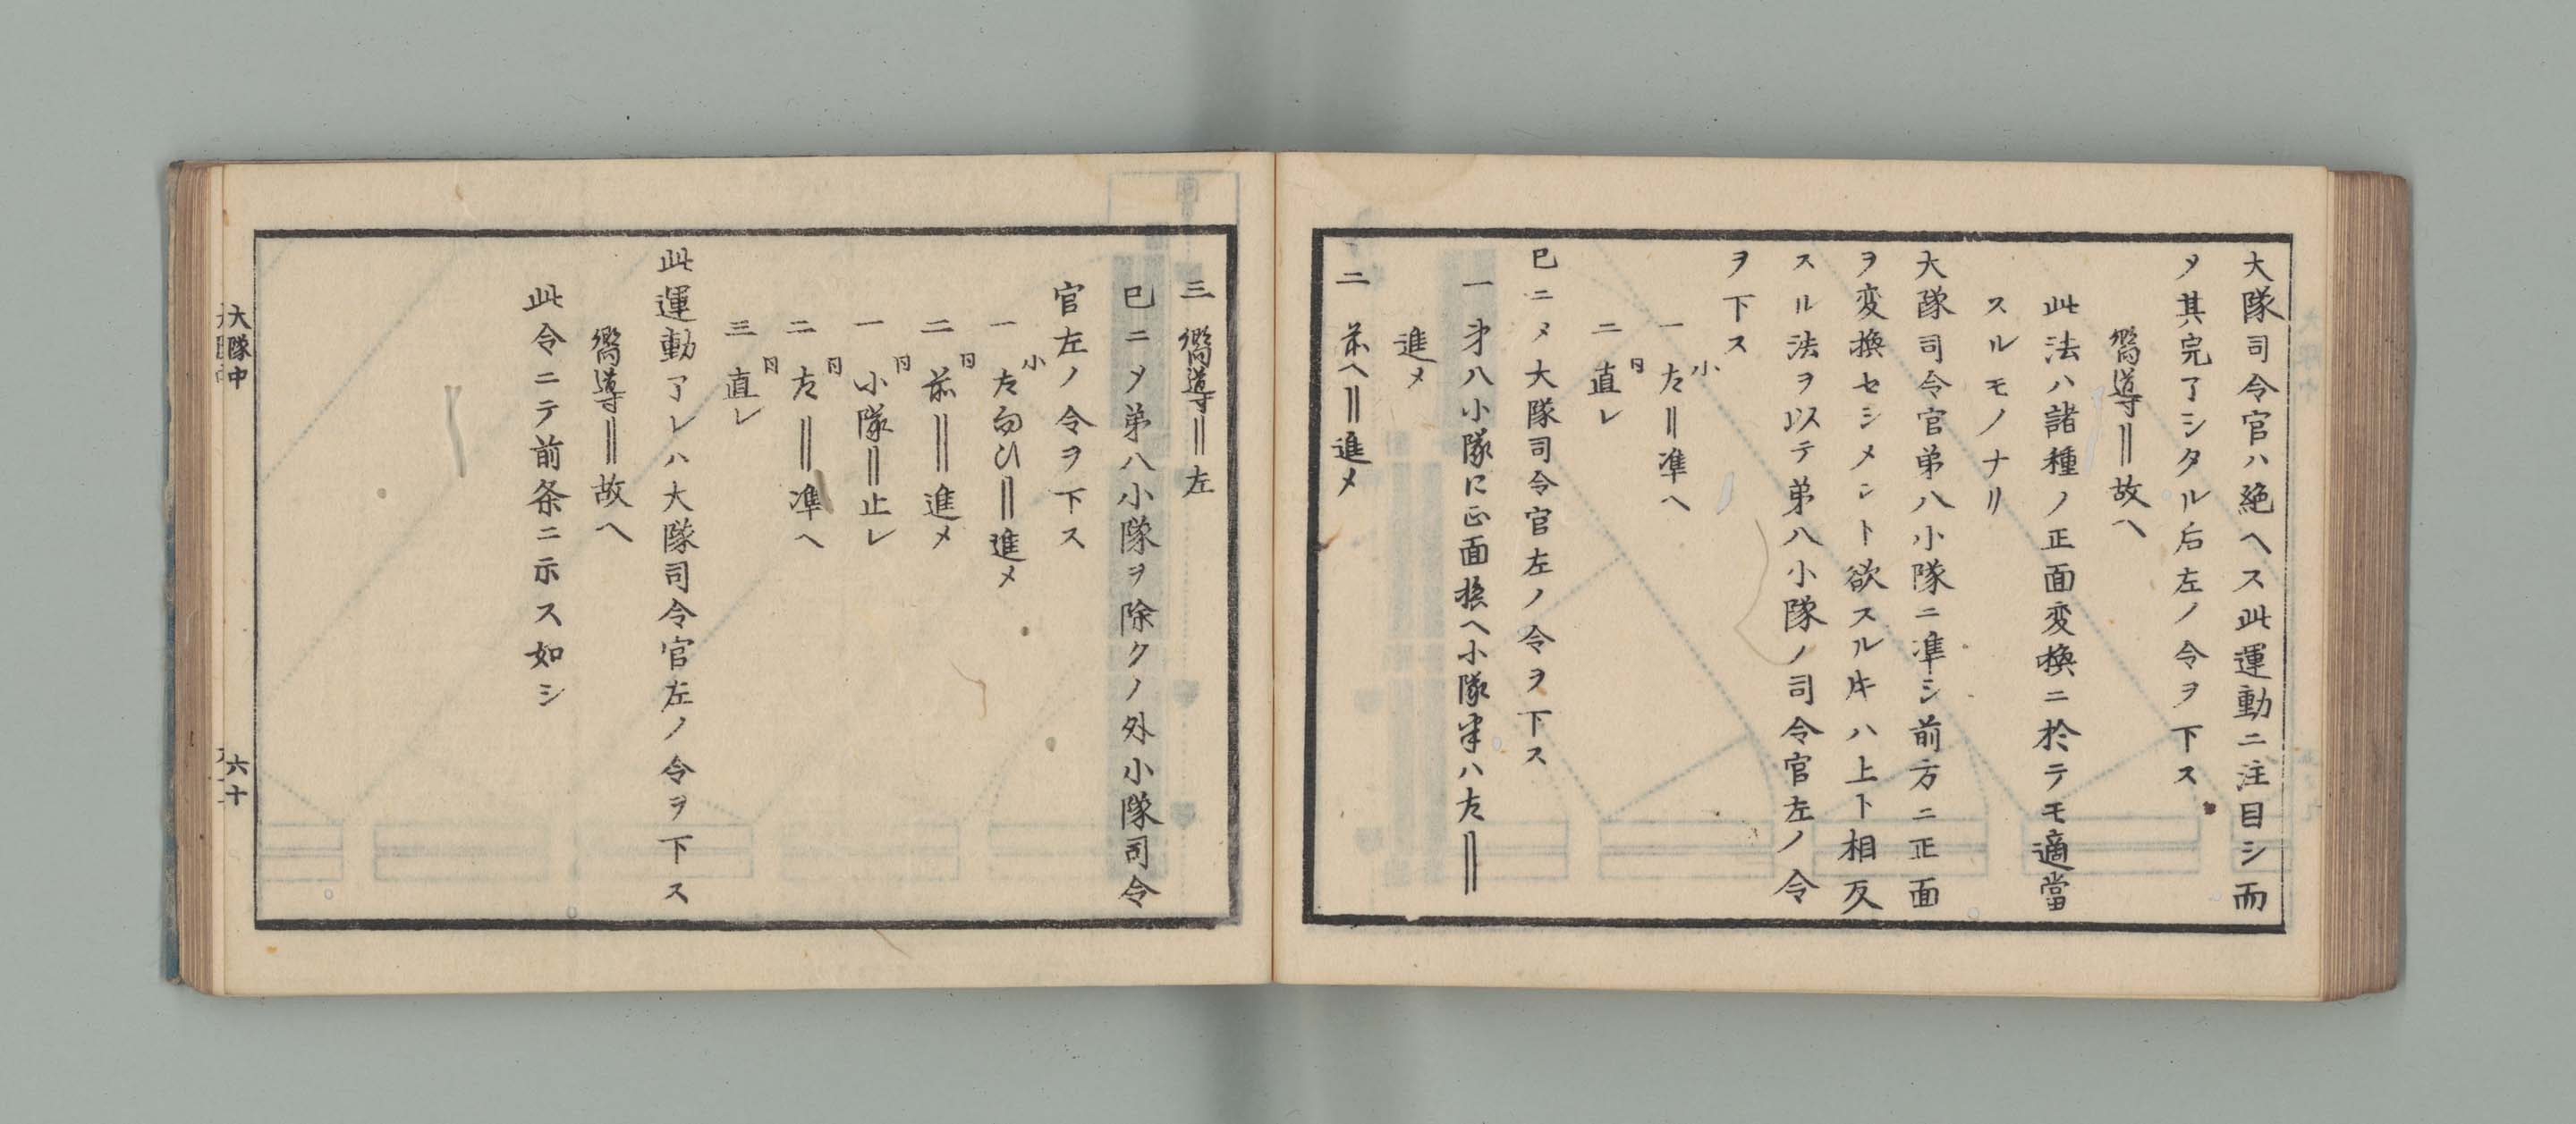 大隊司令官ハ絶ヘス此運動ニ注目シ而
メ其完了シタル后左ノ令ヲ下ス
嚮導＝故ヘ
此法ハ諸種ノ正面変換ニ於テモ適當
スルモノナリ
大隊司令官弟八小隊ニ準シ前方ニ正面
ヲ変換セシメント欲スル㪽ハ上ト相反
スル法ヲ以テ弟八小隊ノ司令官左ノ令
ヲ下ス
小
一 左＝準ヘ
同
二 直レ
已ニメ大隊司令官左ノ令ヲ下ス
一 弟八小隊に正面換ヘ小隊半ハ左＝
進メ
二 前ヘ＝進メ
三 嚮導＝左
已ニメ弟八小隊ヲ除クノ外小隊司令
官左ノ令ヲ下ス
小
一 左向ひ＝進メ
同
二 前＝進メ
同
一 小隊＝止レ
同
二 左＝準ヘ
同
三 直レ
此運動了レハ大隊司令官左ノ令ヲ下ス
嚮導＝故ヘ
此令ニテ前条ニ示ス如シ
大隊中
六十